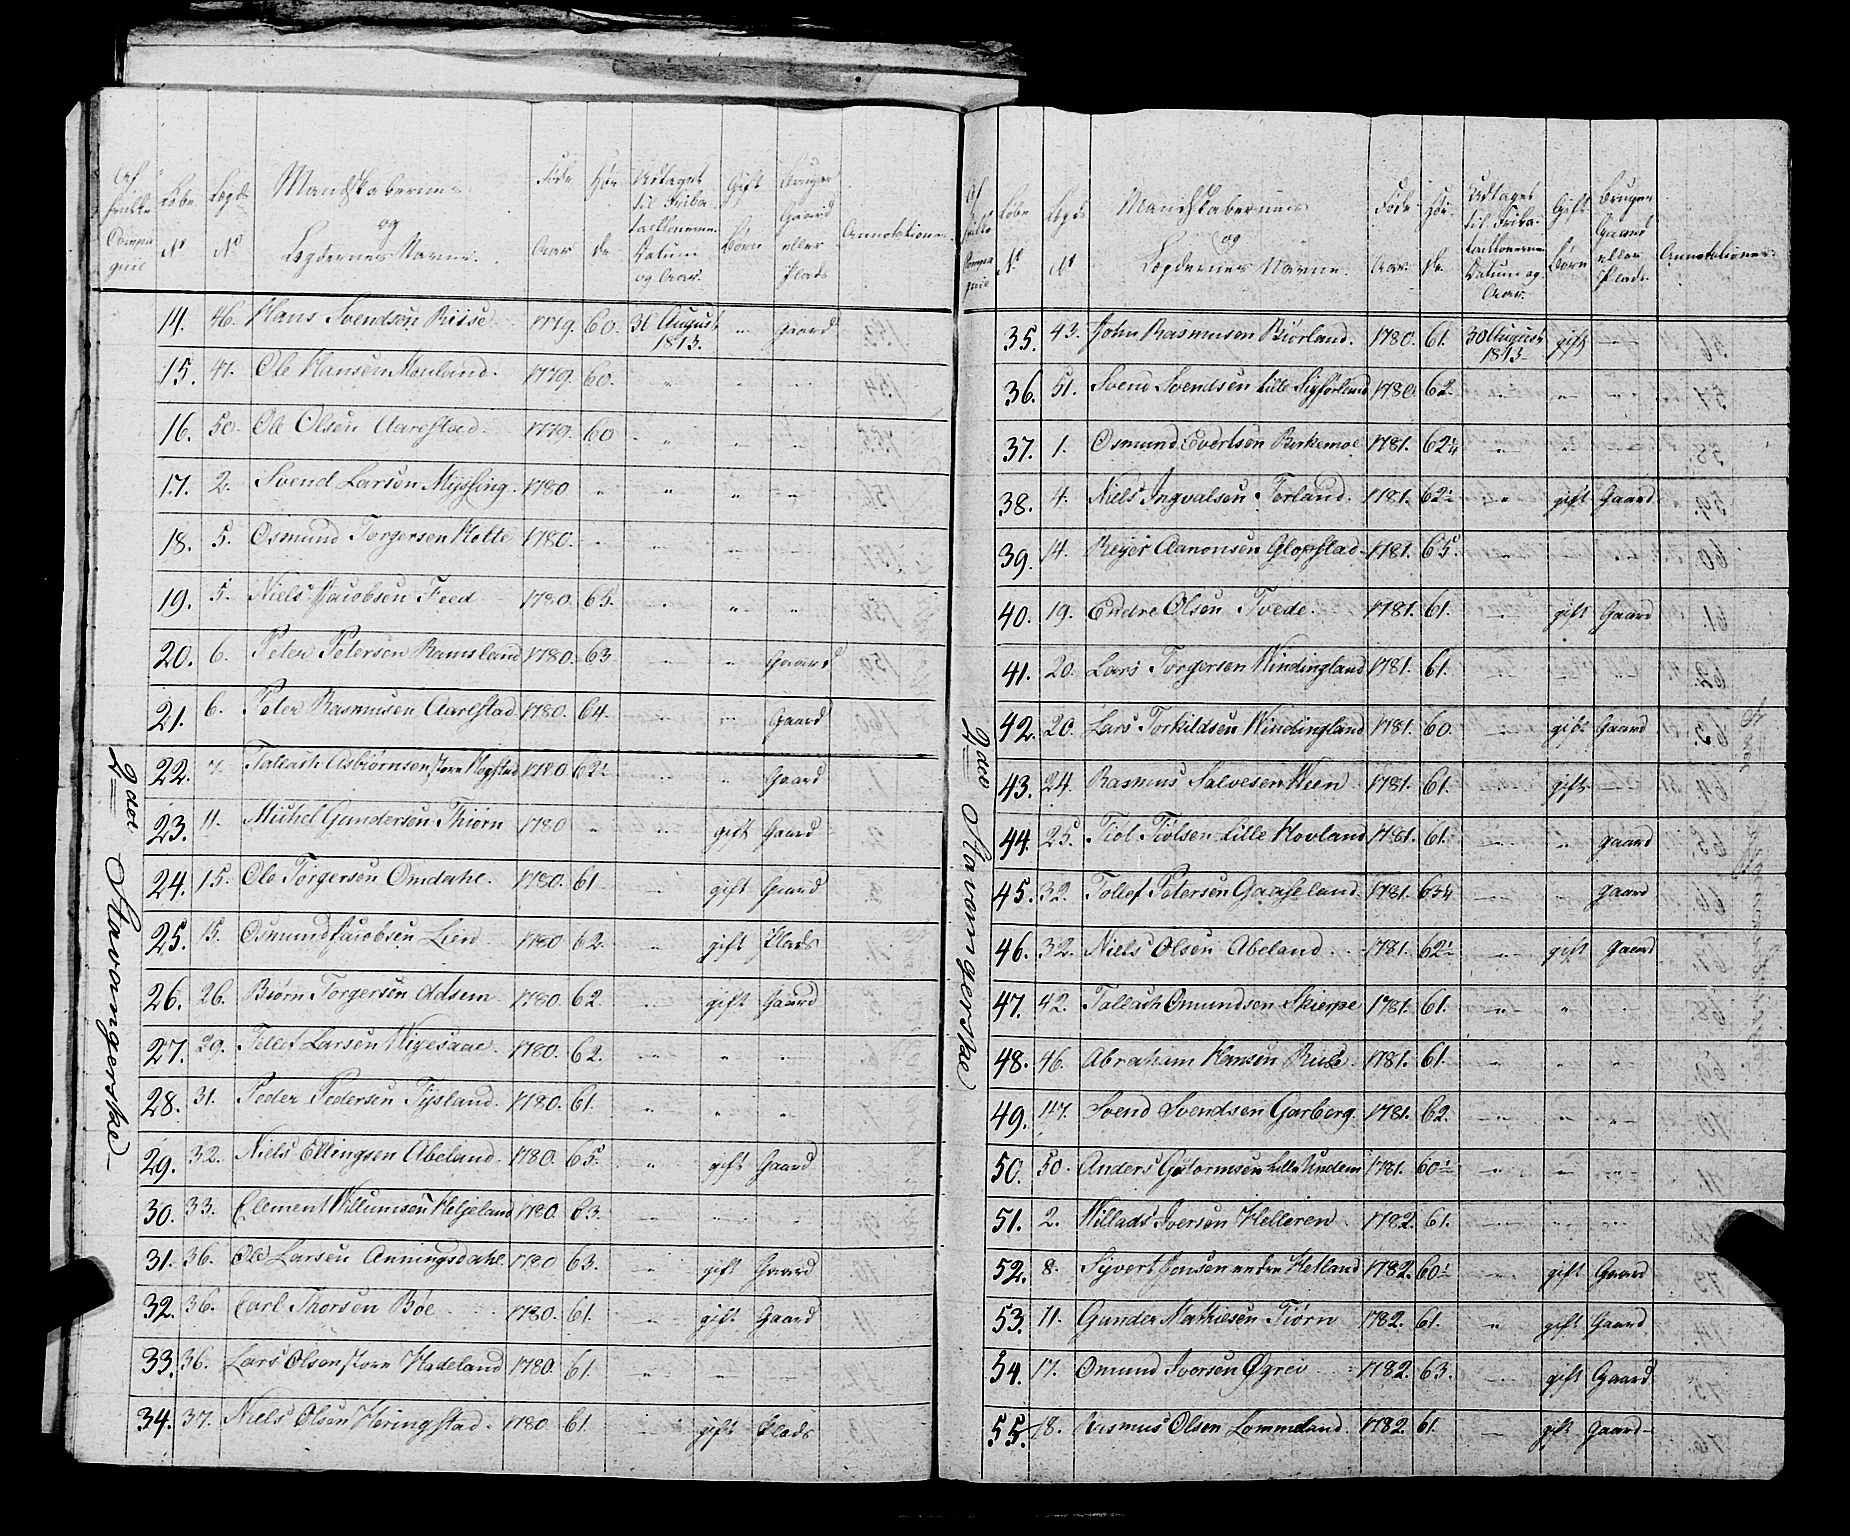 Af hvilke Compagnie | Løbe No | Lægds No | Mandskabernes og Lægdernes Navne. | Føde Aar | Høi de | Udtaget til Friba- taillonerne Datum og Aar. | Gift Børn | Bruger Gaard eller Plads | Annotationer
14. 46. Hans Svendsen Riise 1779. 60. 30 August 1813. " gaard
15. 47. Ole Hansen 1779. 60.
16. 50. Ole Olsen Aarrestad 1779. 60
17. 2. Svend Larsen Myssing. 1780
18. 5. Osmund Torgersen Holte 1780.
19. 5. Niels Jacobsen Feed 1780. 65.
20. 6. Peter Petersen Ramsland 1780. 63 Gaard
21. 6. Peter Rasmusen Aarestad 1780. 64. Gaard
22. 7. Tallach Asbiørnsen store 1780 62½ Gaard
23. 11. Michel Gundersen Thiørn 1780 gift Gaard
24. 15. Ole Torgersen Omdahl. 1780. 61 gift Gaard
25. 15. Osmund Jacobsen Lien 1780 62. gift Plads
26. 26. Biørn Torgersen Odsem 1780. 62. gift Gaard
27. 29. Tollef Larsen 1780. 62.
28. 31. Peder Pedersen Tysland. 1780. 61.
29. 32. Niels Abeland. 1780. 65. gift Gaard
30. 33. Clement Willumsen Helleland 1780. 63.
31. 36. Ole Larsen Anningsdahl 1780 63. gift Gaard
32. 36. Carl Thorsen Bøe 1780. 61. gift Gaard
33. 36. Lars Olsen store Hadeland 1780. 61.
34. 37. Niels Olsen Heringstad. 1780. 61. gift Plads
2den Stavangerske
Af hvilke Compagnie | Løbe No. | Lægds No | Mandskabernes og Lægdernes Navne. | Føde Aar. | Høi de. | Udtaget til Friba- taillonerne Datum og Aar. | Gift Børn | Bruger Gaard eller Plads. | Annotationer.
35. 43. John Rasmusen Biørland. 1780. 61. 30 August 1813 gift
36. 51. Svend Svendsen Lille 1780. 62.
37. 1. Osmund Evertsen Birkemoe 1781. 62¼
38. 4. Niels Ingvalsen Torland. 1781. 62½ gift Gaard
39. 14. Reyer Aanonsen Glopstad 1781. 65
40. 19. Endre Olsen Tvede. 1781. 61. gift Gaard
41. 20. Lars Torgersen Windingland 1781. 61.
42. 20. Lars Torkildsen Windingland 1781. 60. gift Gaard
43. 24. Rasmus Salvesen Hveen 1781. 61. gift
44. 25. Tiøl Tiølsen Lille Hovland 1781. 61. gaard
45. 32. Tollef Petersen Gaaseland. 1781. 63½ gaard
46. 32. Niels Olsen Abeland 1781. 62½ gift Gaard
47. 42. Tallach Omundsen Skierpe 1781. 61.
48. 46. Abraham Hansen Riise 1781. 61.
49. 47. Svend Svendsen Garberg. 1781. 62.
50. 50. Anders Guttormsen Lille Undem 1781. 60½
51. 2. Willads Iversen Helleren 1782. 61.
52. 8. Syvert Jonsen nedre Hetland 1782. 60½ gift Gaard
53. 11. Gunder Mathiesen Tiørn 1782. 61. gift Gaard
54. 17. Omund Iversen Øgrei 1782. 63. gift Gaard
55. 18. Rasmus Olsen Lommeland. 1782. 61. gift Gaard
2den Stavangerske